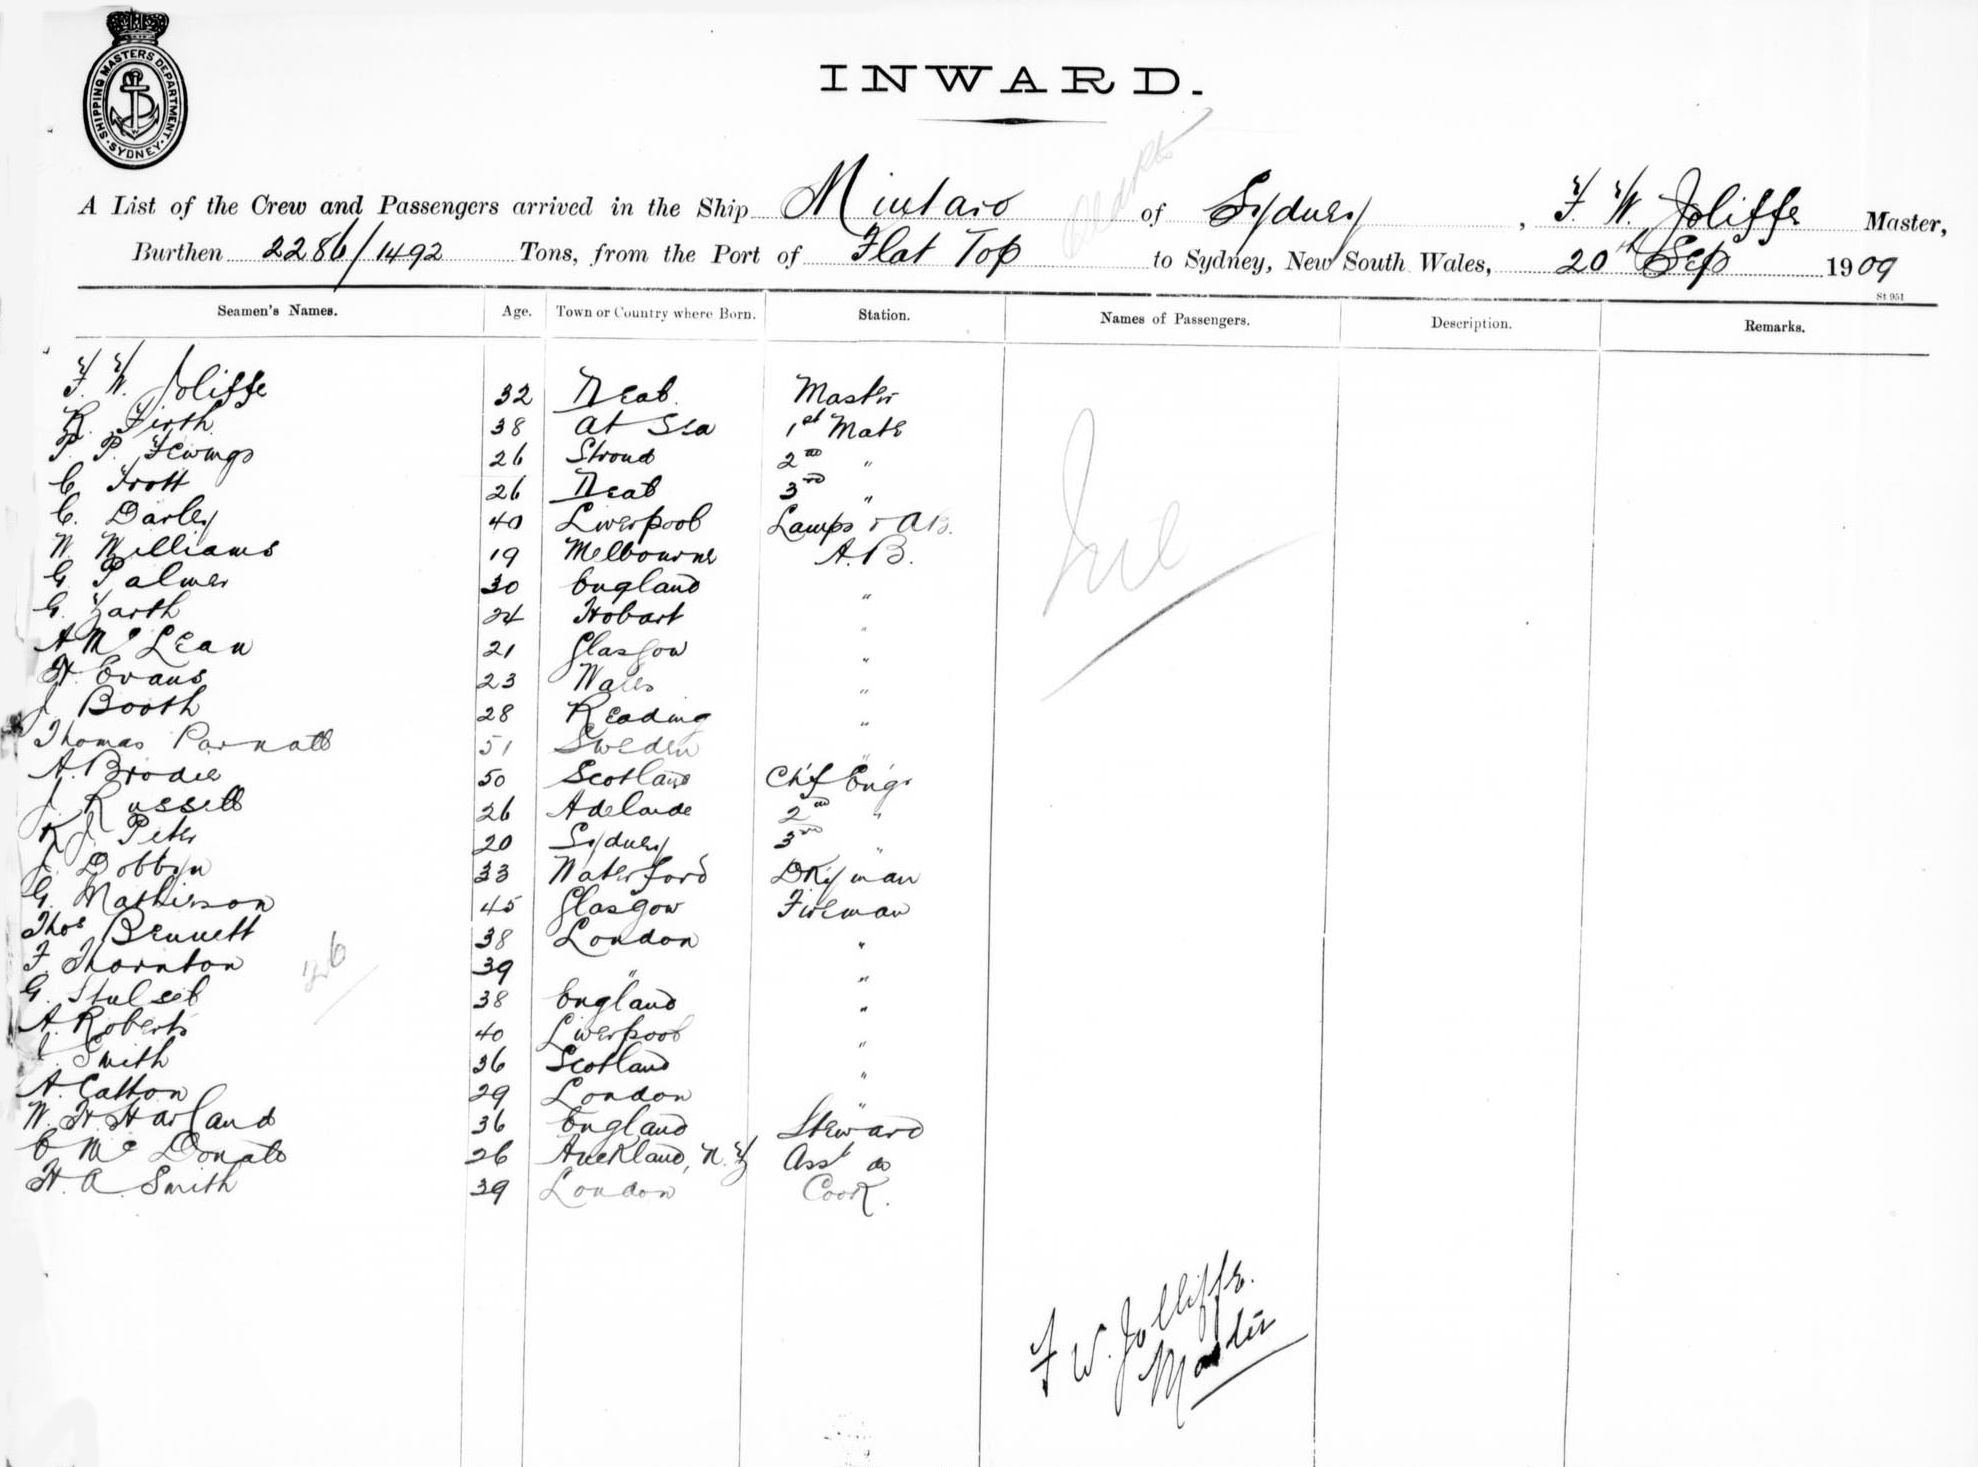 SHIPPING MASTERS DEPARTMENT
SYDNEY
INWARD.
A List of the Crew and Passengers arrived in the Ship Mintaro of Sydney, F. W. Joliffe Master,
Burthen 2286/1492 Tons, from the Port of Flat Top to Sydney, New South Wales, 20th Sep 1909
St 951
Seamen's Names. Age. Town or Country where Born. Station. Names of Passengers. Description. Remarks.
F. W. Joliffe 32 Master
R. Firth 38 at Sea 1st Mate
P. P. Fewings 26 Stroud 2nd "
C Trott 26 3rd "
C. Darley 40 Liverpool Lamps & AB.
W Williams 19 Melbourne A.B.
G. Palmer 30 England "
G. Garth 24 Hobart "
A McLean 21 Glasgow "
H. Evans 23 Wales "
J Booth 28 Reading "
Thomas 51 Sweden "
A. Brodie 50 Scotland Chf Engr
J Russell 26 Adelaide 2nd "
K J. Peter 20 Sydney 3rd "
J. Dobbyn 33 Waterford Dkyman
G. Mathieson 45 Glasgow Fireman
Thos Bennett 38 London "
F. Thornton 39 " "
G. 38 England "
A. Roberts 40 Liverpool "
Smith 36 Scotland "
A. Catton 29 London "
W. H. Harland 36 England Steward
C McDonald 26 Auckland, N.Z Asst do
H. A. Smith 39 London Cook.
26
Nil
F W. Jolliffe.
Master